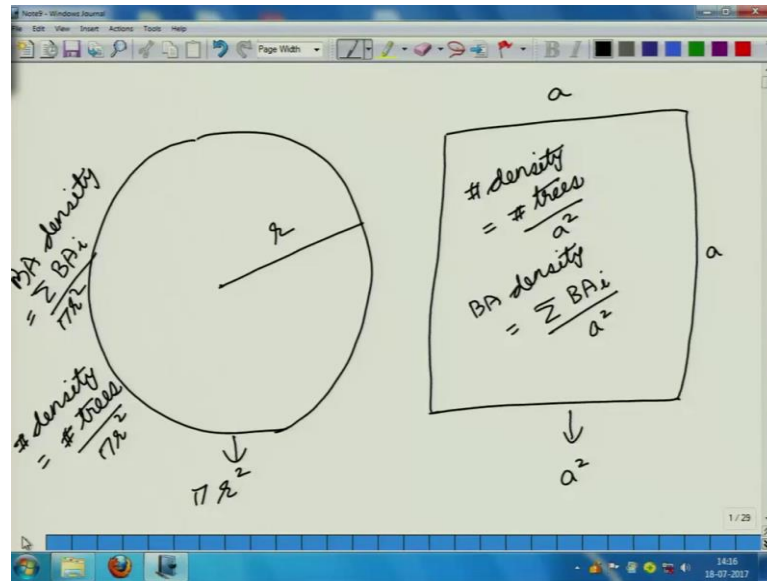 Note9 - Windows Journal
File Edit View Insert Actions Tools Help
Page Width
B I
BA density
= Σ BAi
πr²
# density
= # trees
πr²
r
πr²
a
# density
= # trees
a²
BA density
= Σ BAi
a²
a
a²
1 / 29
14:16
18-07-2017